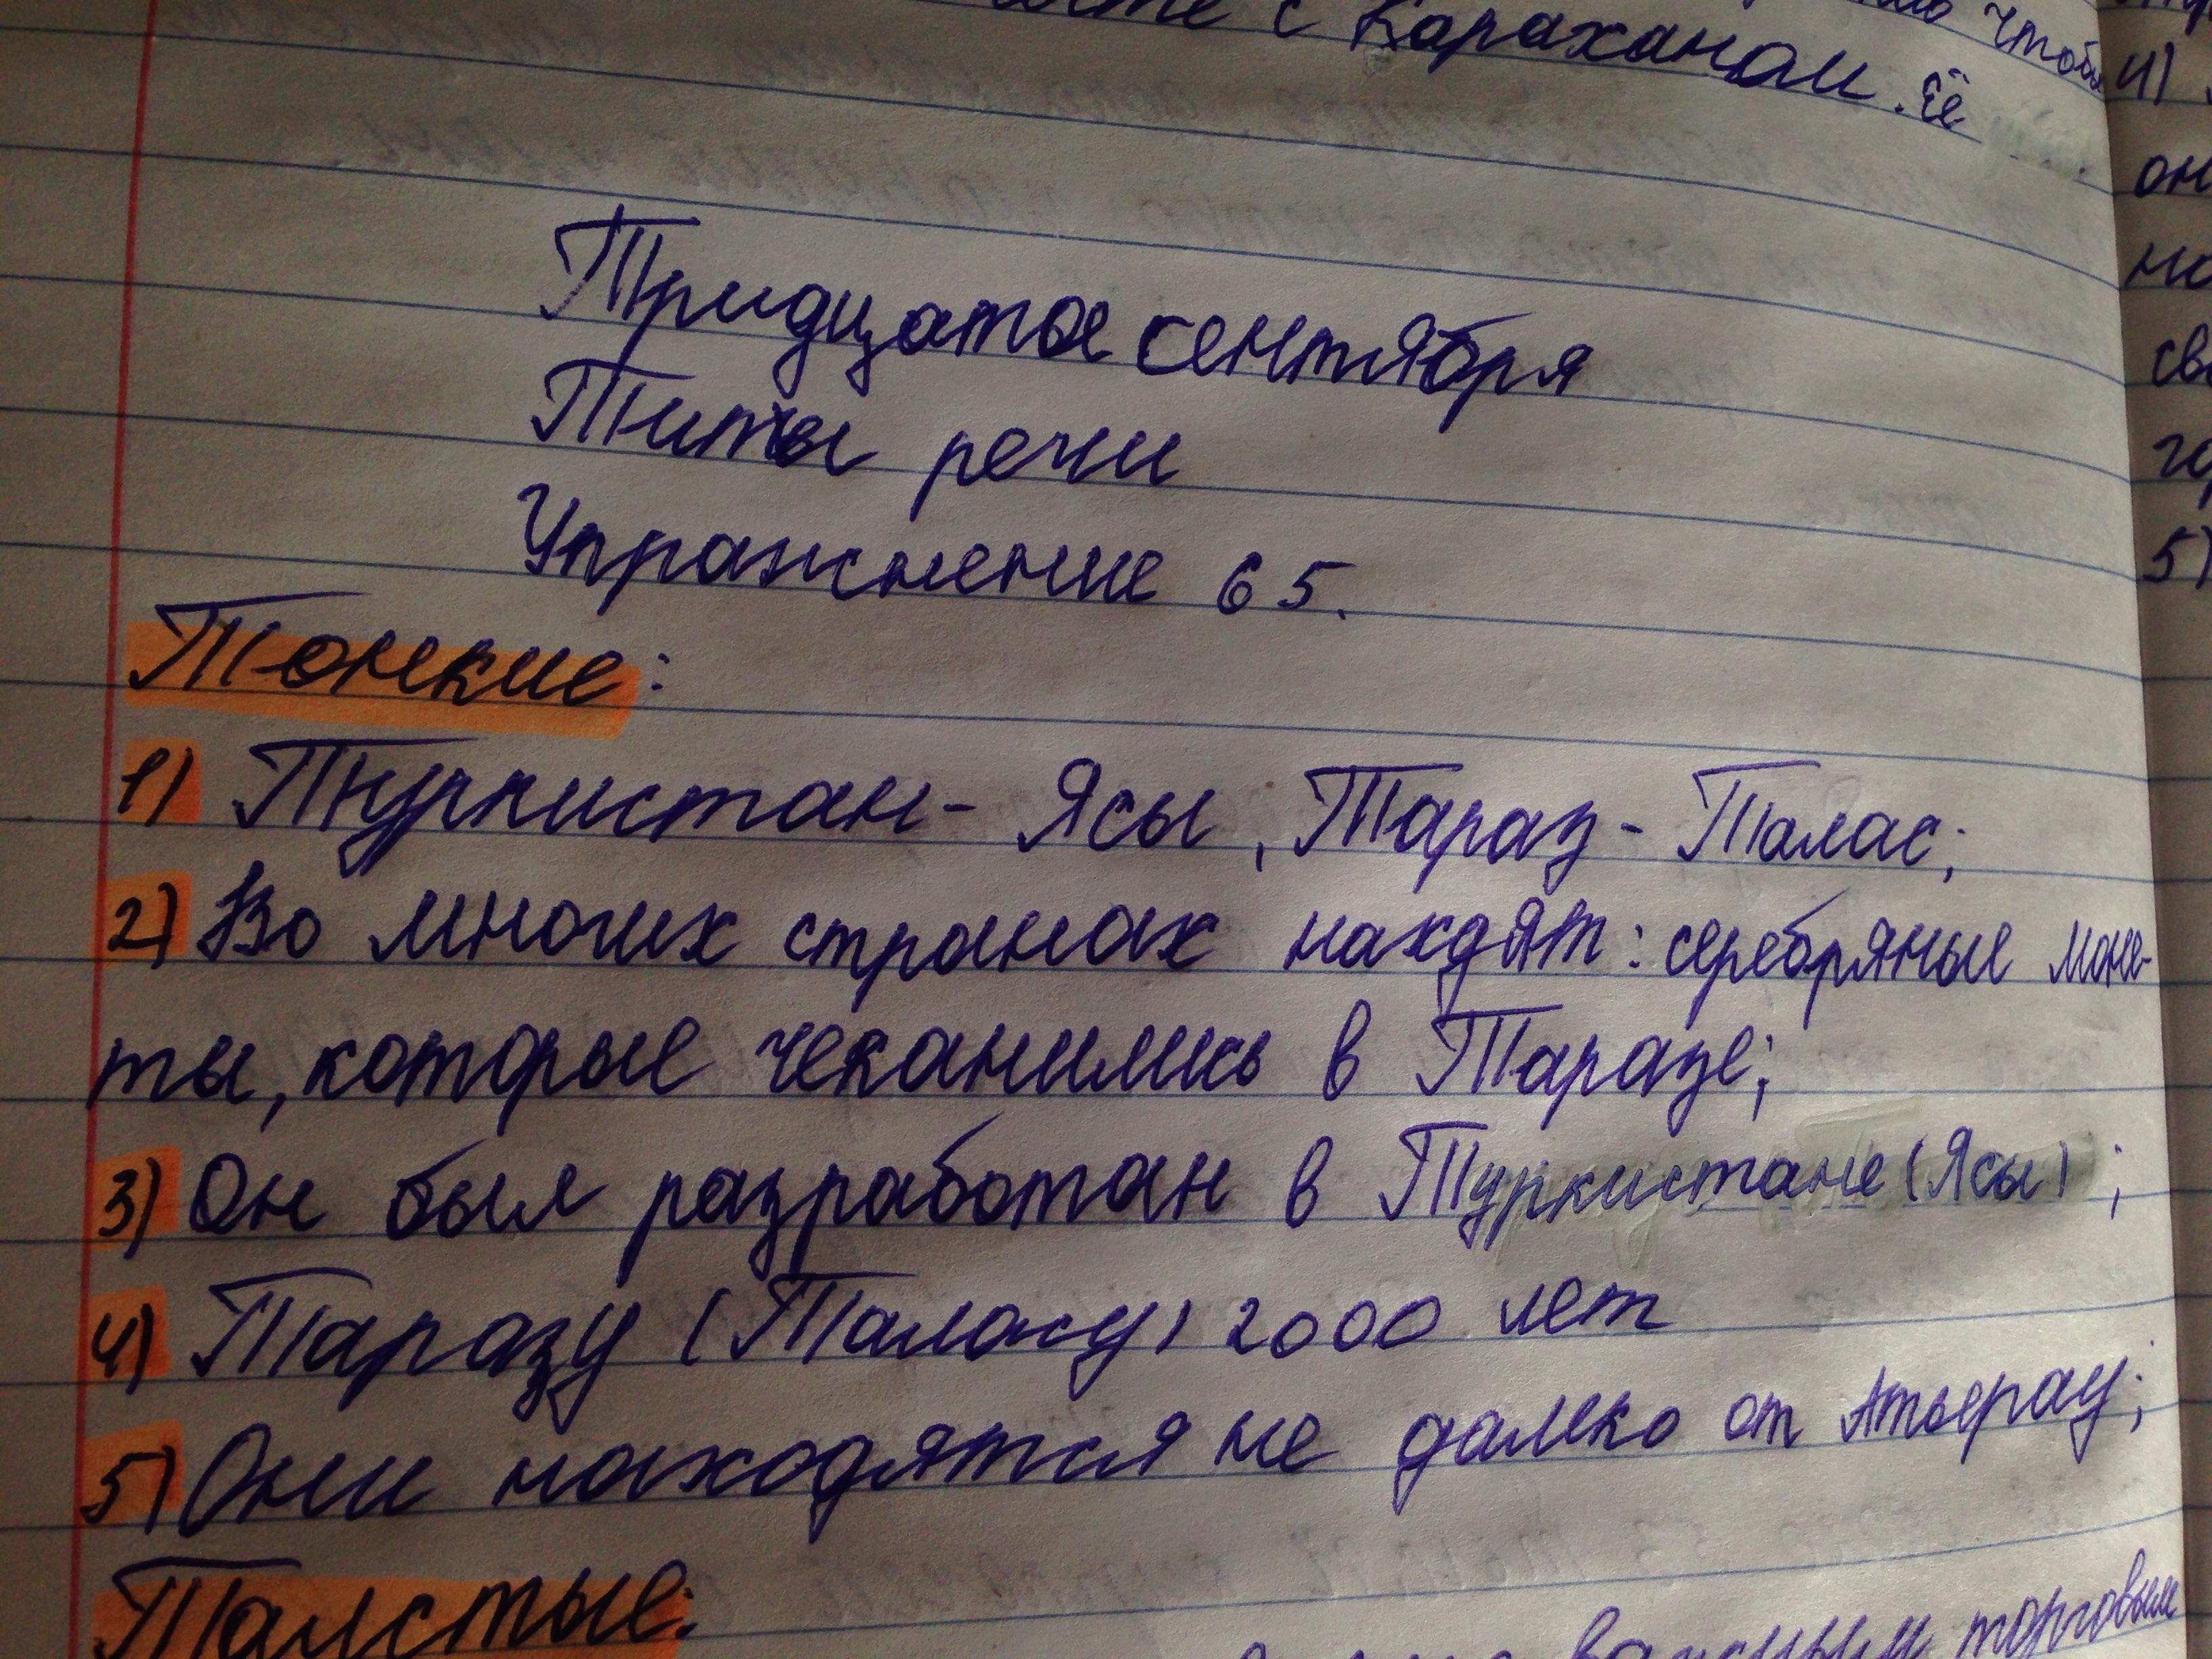 с Караханом. Её
чтобы
Тридцатое сентября
Типы речи
Упражнение 65.
Тонкие:
1) Туркистан- Ясы, Тараз- Талас;
2) Во многих странах находят: серебряные моне-
ты, которые чеканились в Таразе;
3) Он был разработан в Туркистане (Ясы);
4) Таразу (Таласу) 2000 лет
5) Они находятся не далеко от Атьерау;
Толстые:
важным торговым
4)
5)